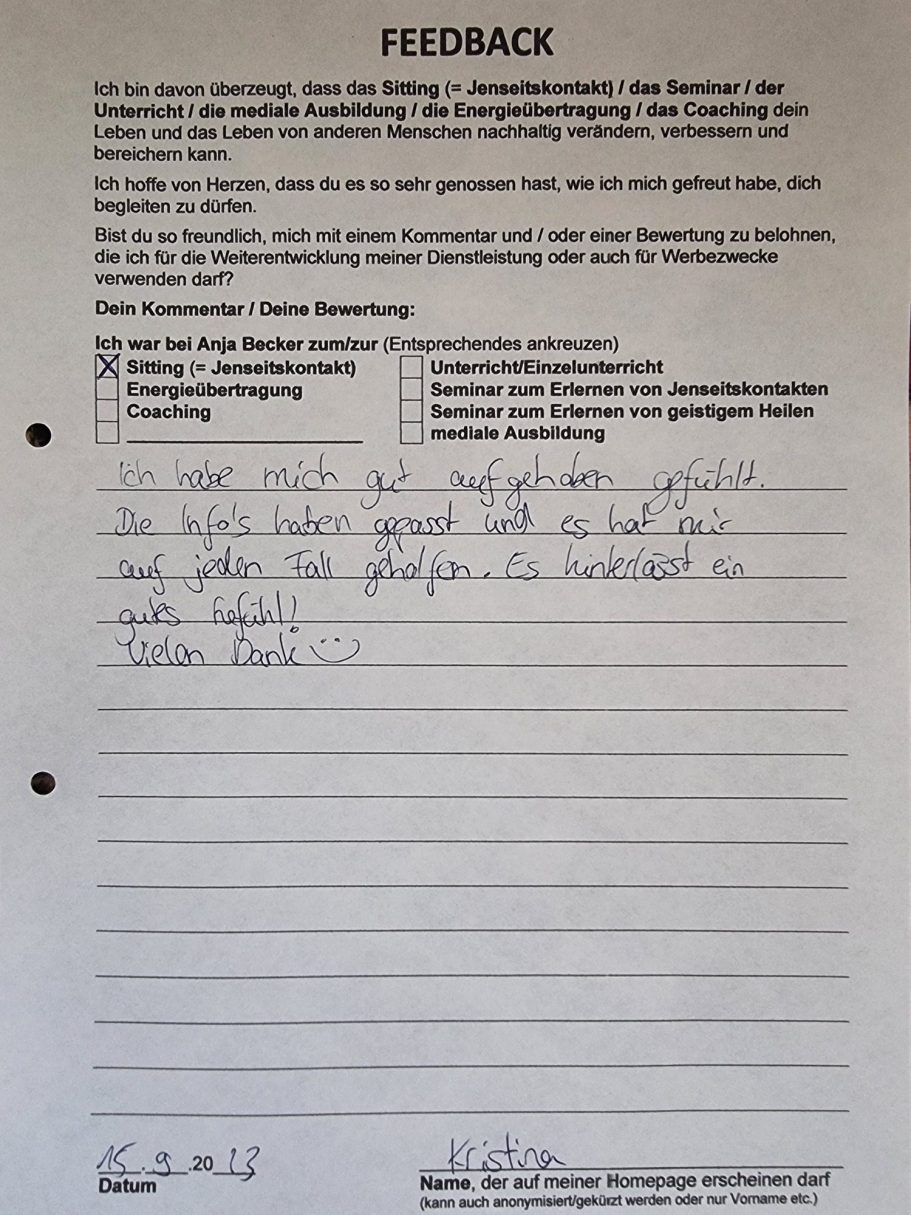 FEEDBACK
Ich bin davon überzeugt, dass das Sitting (= Jenseitskontakt) / das Seminar / der
Unterricht / die mediale Ausbildung / die Energieübertragung / das Coaching dein
Leben und das Leben von anderen Menschen nachhaltig verändern, verbessern und
bereichern kann.
Ich hoffe von Herzen, dass du es so sehr genossen hast, wie ich mich gefreut habe, dich
begleiten zu dürfen.
Bist du so freundlich, mich mit einem Kommentar und / oder einer Bewertung zu belohnen,
die ich für die Weiterentwicklung meiner Dienstleistung oder auch für Werbezwecke
verwenden darf?
Dein Kommentar / Deine Bewertung:
Ich war bei Anja Becker zum/zur (Entsprechendes ankreuzen)
X Sitting (= Jenseitskontakt) Unterricht/Einzelunterricht
Energieübertragung Seminar zum Erlernen von Jenseitskontakten
Coaching Seminar zum Erlernen von geistigem Heilen
mediale Ausbildung
Ich habe mich gut aufgehoben gefühlt.
Die Info's haben gepasst und es hat mir
auf jeden Fall geholfen. Es hinterlässt ein
gutes Gefühl!
Vielen Dank
15.9.2023 Kristina
Datum Name, der auf meiner Homepage erscheinen darf
(kann auch anonymisiert/gekürzt werden oder nur Vorname etc.)